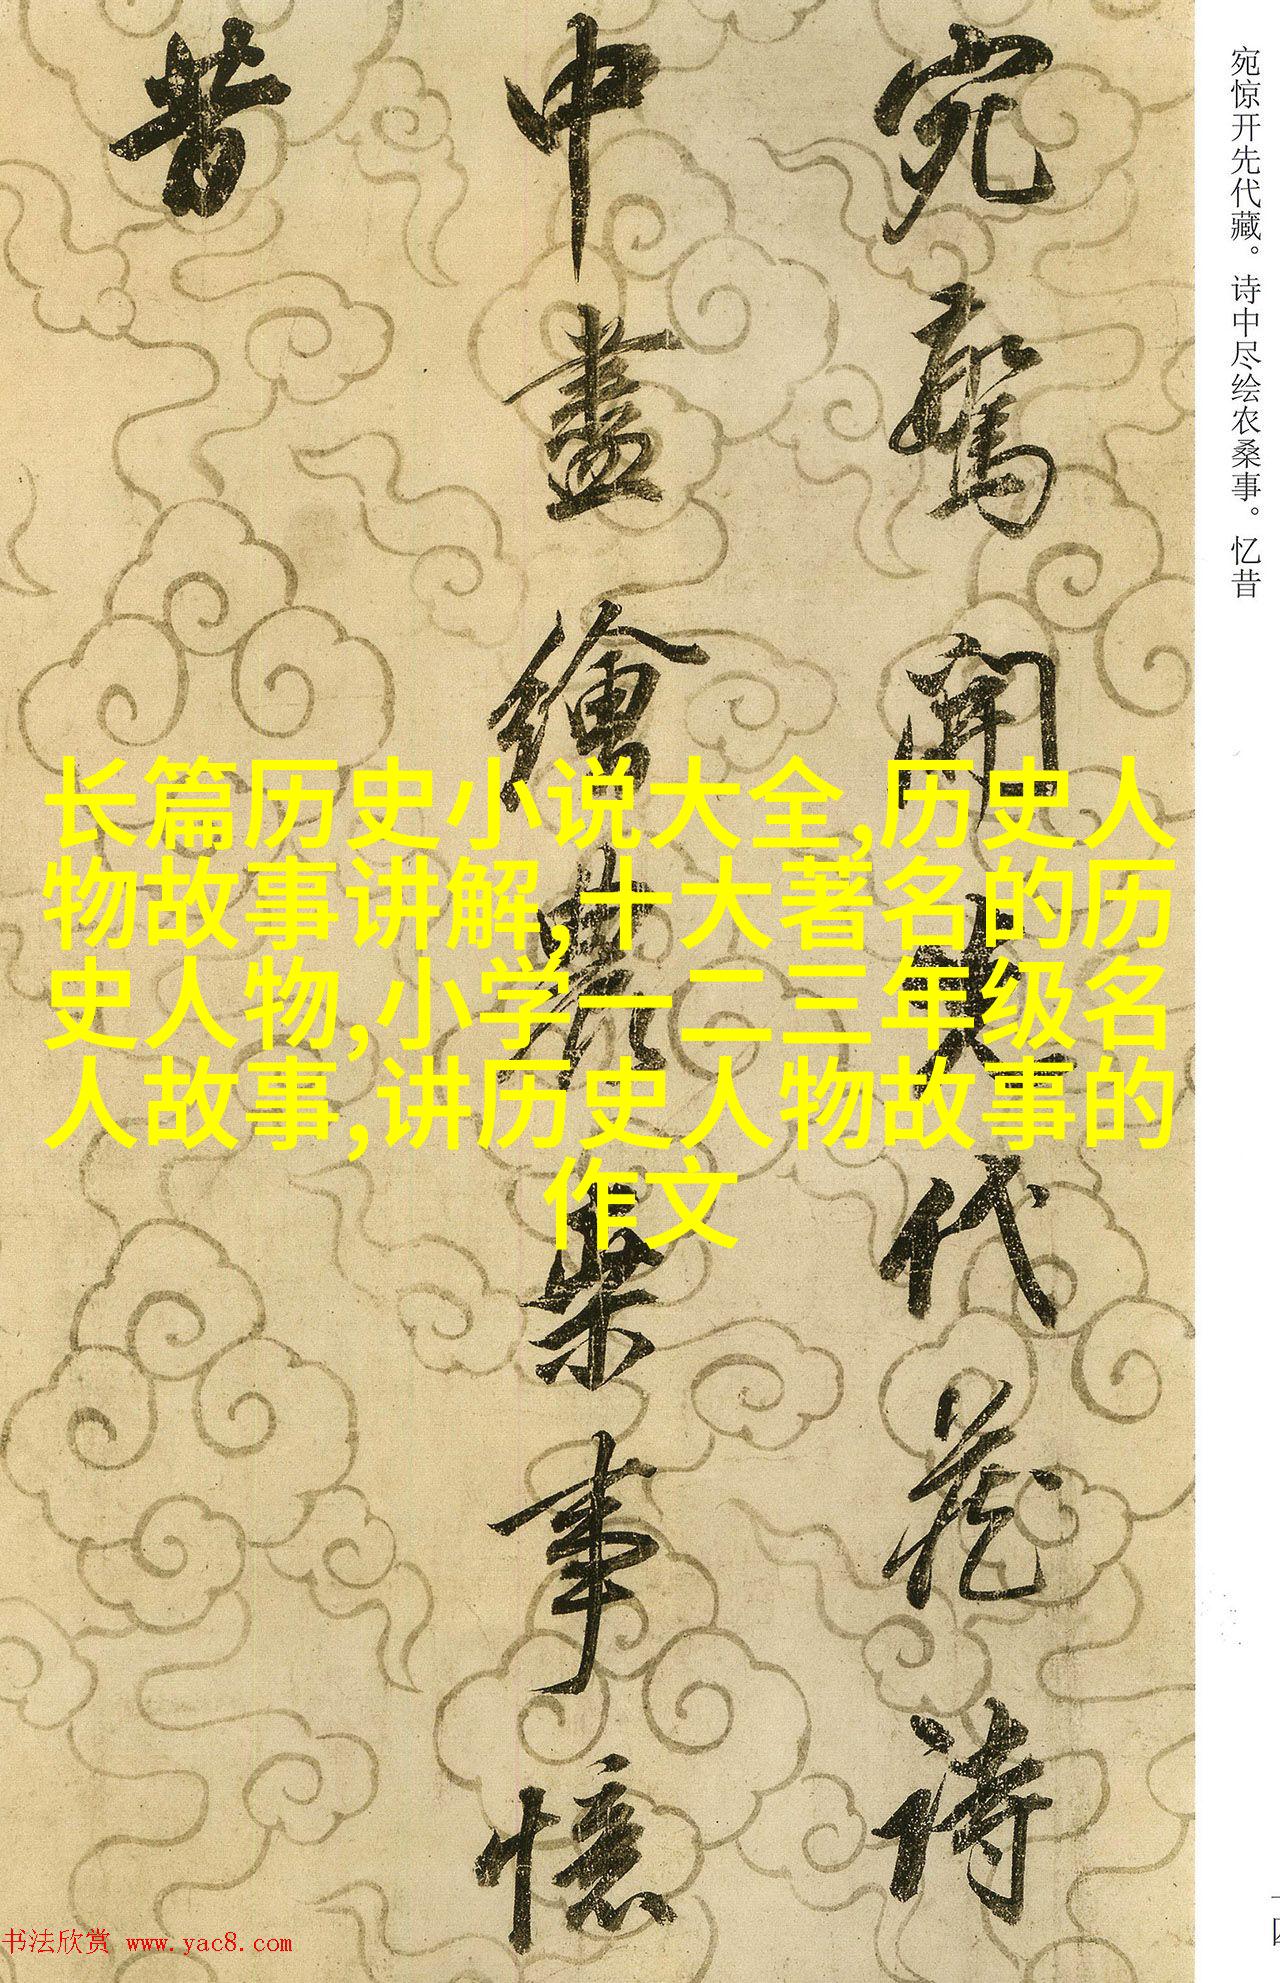 宛驚開先代藏詩
中盡繪農桒事憶
昔
宛惊开先代藏。诗中尽绘农桑事。忆昔
长篇历史小说大全,历史人
物故事讲解,十大著名的历
史人物,小学一二三年级名
人故事,讲历史人物故事的
作文
书法欣赏 www.yac8.com